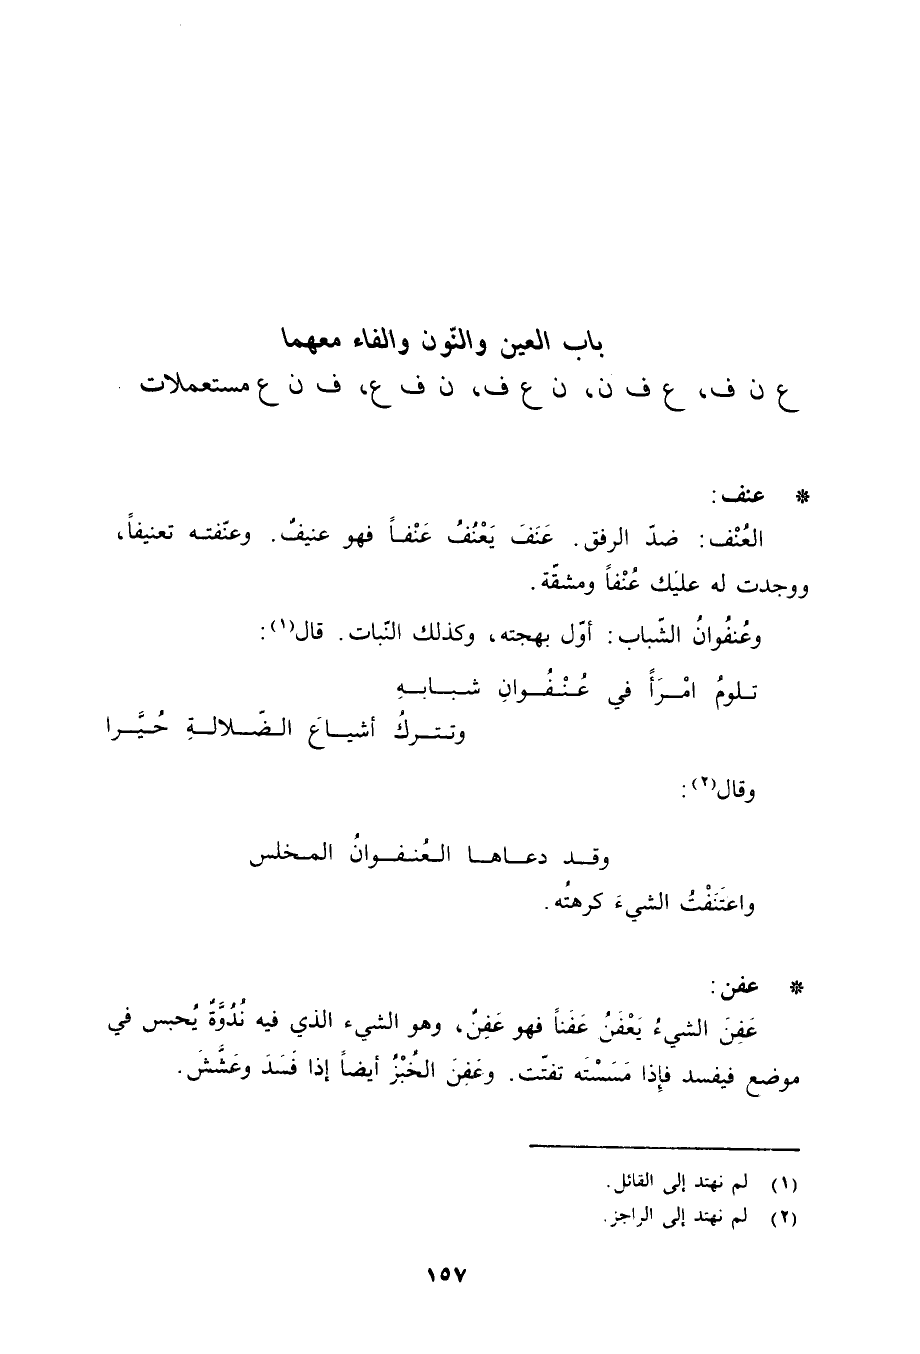 باب العين والنّون والفاء معهما
ع ن ف، ع ف ن، ن ع ف، ن ف ع، ف ن ع مستعملات
* عنف:
العُنْف: ضدّ الرفق. عَنَفَ يَعْنُفُ عَنْفاً فهو عنيفٌ. وعنّفته تعنيفاً،
ووجدت له عليَك عُنْفاً ومشقّة.
وعُنفُوانُ الشّباب: أوّل بهجته، وكذلك النّبات. قال(١):
تلومُ امْرَأً في عُنْفُوانِ شبابهِ
وتتركُ أشياعَ الضّلالةِ حُيَّرا
وقال(٢):
وقد دعاها العُنفوانُ المخلس
واعتَنَفْتُ الشيءَ كرهتُه.
* عفن:
عَفِنَ الشيءُ يَعْفَنُ عَفَناً فهو عَفِنٌ، وهو الشيء الذي فيه نُدُوَّةٌ يُحبس في
موضع فيفسد فإذا مَسَسْتَه تفتّت. وعَفِنَ الخُبْزُ أيضاً إذا فَسَدَ وعَشَّشَ.
(١) لم نهتد إلى القائل.
(٢) لم نهتد إلى الراجز.
١٥٧